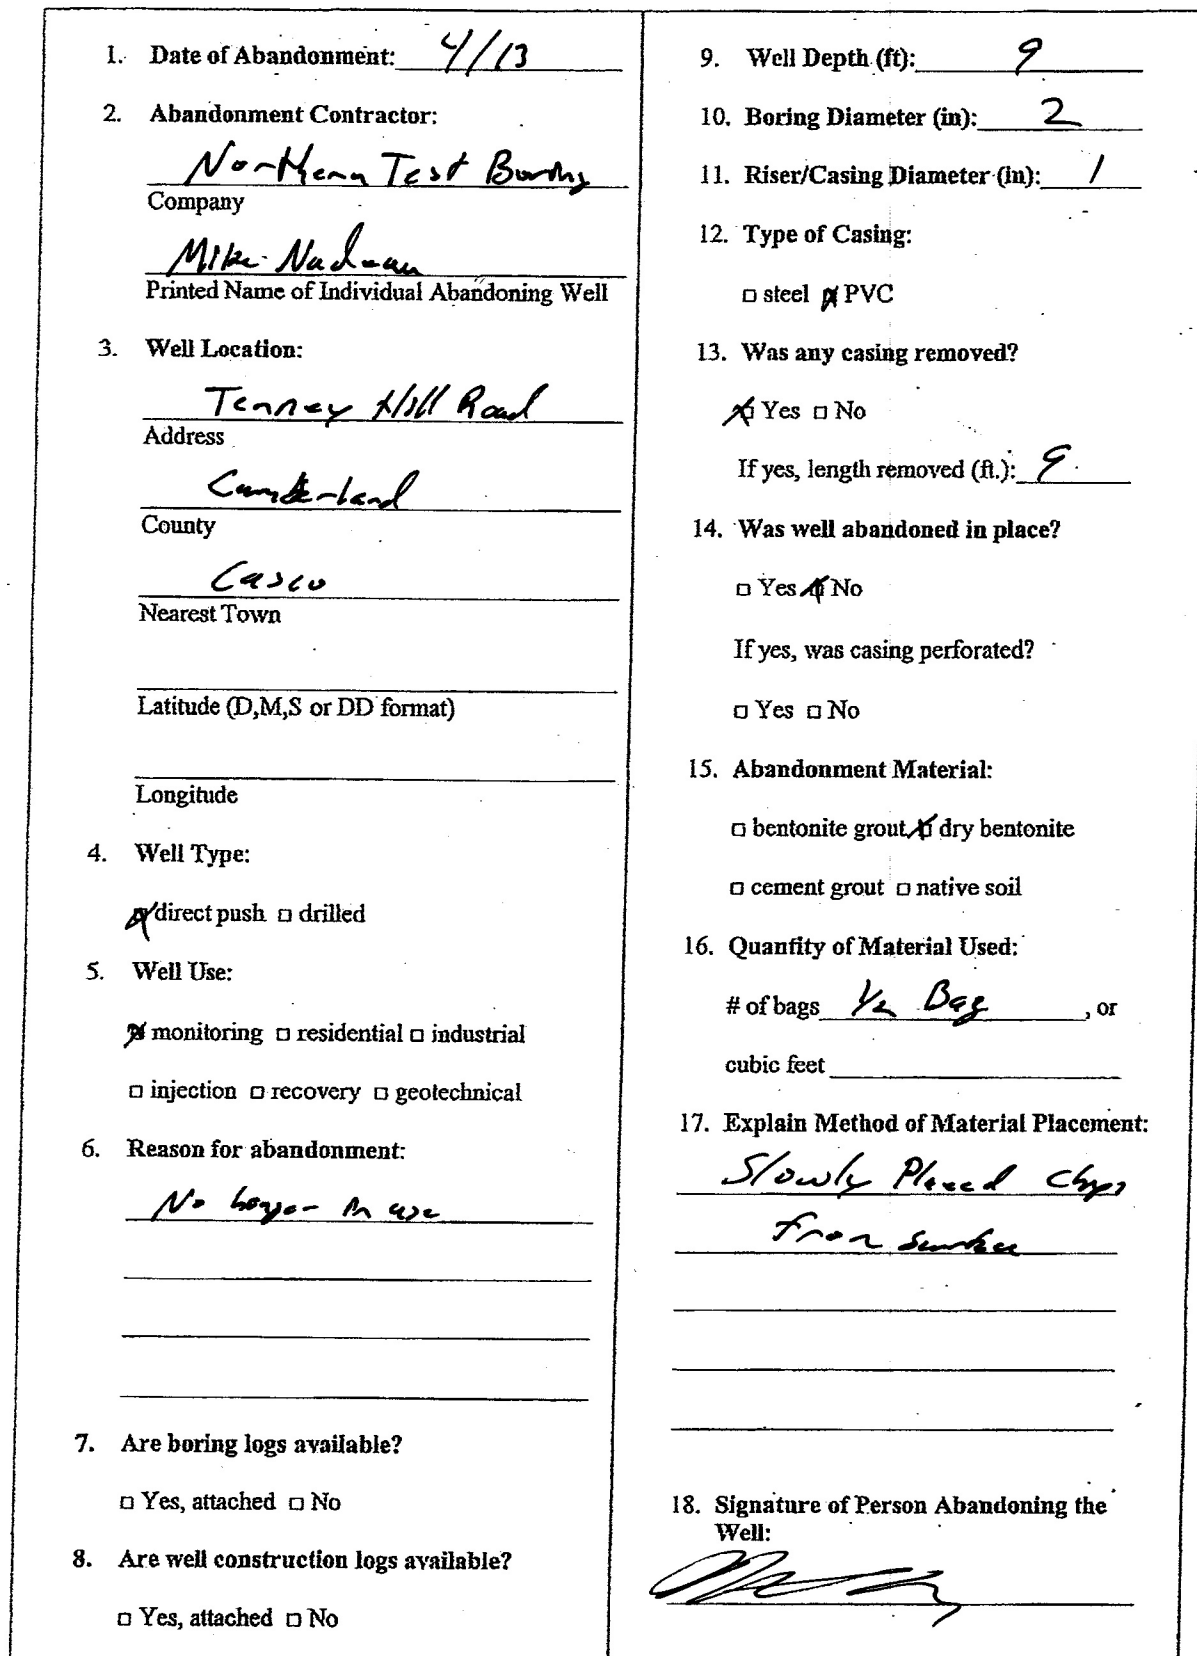 1. Date of Abandonment: 4/13
2. Abandonment Contractor:
Northern Test Boring
Company
Mike Nadeau
Printed Name of Individual Abandoning Well
3. Well Location:
Tenney Hill Road
Address
Cumberland
County
Casco
Nearest Town
Latitude (D,M,S or DD format)
Longitude
4. Well Type:
direct push □ drilled
5. Well Use:
monitoring □ residential □ industrial
□ injection □ recovery □ geotechnical
6. Reason for abandonment:
No longer in use
7. Are boring logs available?
□ Yes, attached □ No
8. Are well construction logs available?
□ Yes, attached □ No
9. Well Depth (ft): 9
10. Boring Diameter (in): 2
11. Riser/Casing Diameter (in): 1
12. Type of Casing:
□ steel ☒ PVC
13. Was any casing removed?
☒ Yes □ No
If yes, length removed (ft.): 9
14. Was well abandoned in place?
□ Yes ☒ No
If yes, was casing perforated?
□ Yes □ No
15. Abandonment Material:
□ bentonite grout ☒ dry bentonite
□ cement grout □ native soil
16. Quantity of Material Used:
# of bags 1/2 Bag, or
cubic feet
17. Explain Method of Material Placement:
Slowly Placed Chips
From surface
18. Signature of Person Abandoning the
Well: